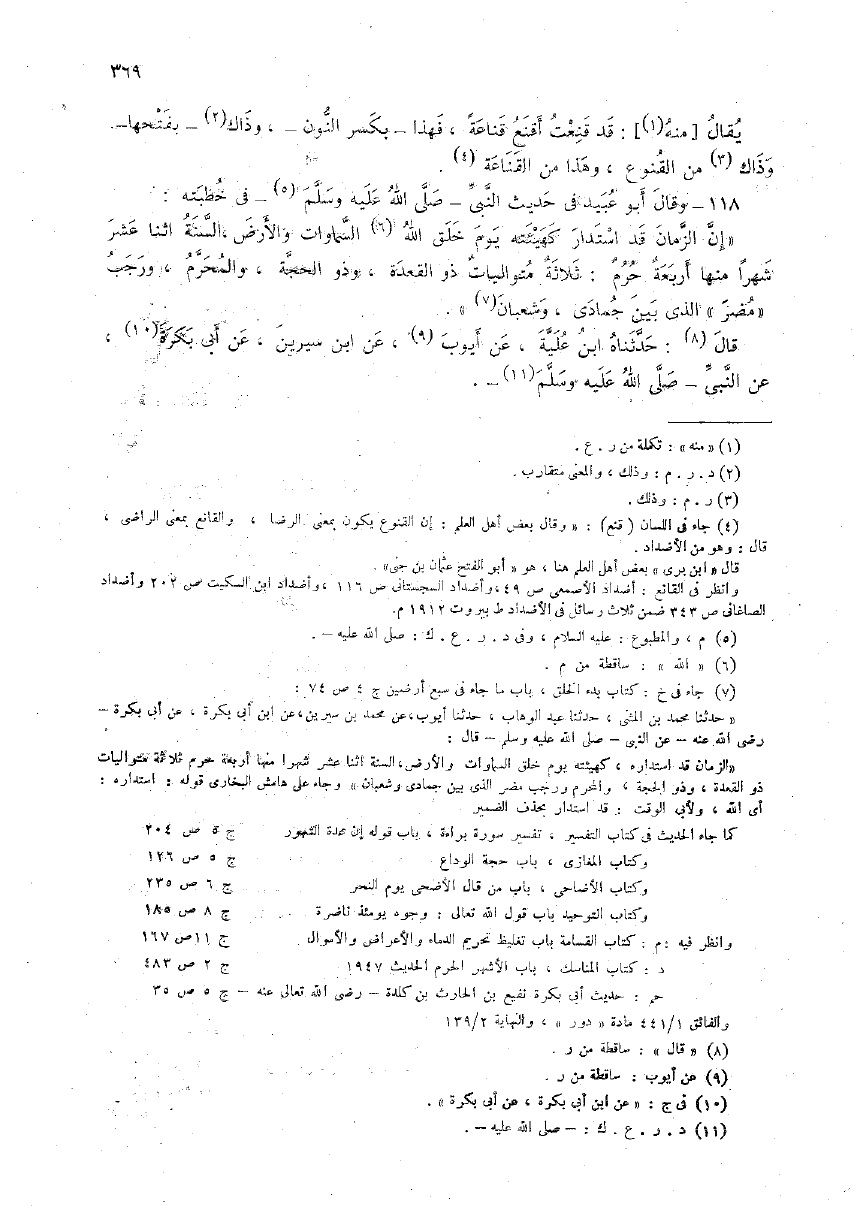 ٣٦٩
يُقالُ [منهُ(١)] : قَد قَنِعْتُ أقنَعُ قَناعَةً ، فَهذا – بكَسر النُّون – ، وذَاك(٢) – بفَتْحها–
وَذَاك (٣) من القُنوع ، وهَذا من القَنَاعَة (٤) .
١١٨ – وقالَ أبو عُبَيد فى حَديث النَّبيِّ – صَلَّى اللهُ عَلَيه وسَلَّمَ (٥) – فى خُطبَته :
«إنَّ الزَّمانَ قَد اسْتَدارَ كَهَيْئَته يَومَ خَلَق اللهُ (٦) السَّماوات والأرضَ ،السَّنَةُ اثنا عَشَرَ
شَهراً منها أربَعَةٌ حُرُمٌ : ثَلاثَةٌ مُتَوالياتٌ ذو القَعدَة ، وذو الحجَّة ، والمُحَرَّمُ ، ورَجَبُ
«مُضَرَ» الذى بَينَ جُمادَى ، وشَعبانَ(٧) » .
قالَ (٨) : حَدَّثَناهُ ابنُ عُلَيَّةَ ، عَن أيوبَ (٩) ، عَن ابن سيرينَ ، عَن أبى بَكرَةَ(١٠) ،
عن النَّبيِّ – صَلَّى اللهُ عَلَيه وسَلَّمَ(١١)– .
(١) « منه» : تكملة من ر . ع .
(٢) د . ر . م : وذلك ، والمعنى متقارب .
(٣) ر . م : وذلك .
(٤) جاء فى اللسان ( قنع) : « وقال بعض أهل العلم : إن القنوع يكون بمعنى الرضا ، والقانع بمعنى الراضى ،
قال : وهو من الأضداد .
قال « ابن برى » بعض أهل العلم هنا ، هو « أبو الفتح عثمان بن جنى» .
وانظر فى القانع : أضداد الأصمعى ص ٤٩ ،وأضداد السجستانى ص ١١٦ ،وأضداد ابن السكيت ص ٢٠٢ وأضداد
الصاغانى ص ٢٤٣ ضمن ثلاث رسائل فى الأضداد ط بيروت ١٩١٢ م.
(٥) م ، والمطبوع : عليه السلام ، وفى د . ر . ع . ك : صلى الله عليه – .
(٦) « الله » : ساقطة من م .
(٧) جاء فى خ : كتاب بدء الخلق ، باب ما جاء فى سبع أرضين ج ٤ ص ٧٤ :
« حدثنا محمد بن المثنى ، حدثنا عبد الوهاب ، حدثنا أيوب،عن محمد بن سيرين،عن ابن أبى بكرة ، عن أبى بكرة –
رضى الله عنه – عن النبى – صلى الله عليه وسلم – قال :
«الزمان قد استداره ، كهيئته يوم خلق السماوات والأرض،السنة اثنا عشر شهرا منها أربعة حرم ثلاثة متواليات
ذو القعدة ، وذو الحجة ، والمحرم ورجب مضر الذى بين جمادى وشعبان» وجاء على هامش البخارى قوله : استداره :
أى الله ، ولأبى الوقت : قد استدار بحذف الضمير
كما جاء الحديث فى كتاب التفسير ، تفسير سورة براءة ، باب قوله إن عدة الشهور ج ٥ ص ٢٠٤
وكتاب المغازى ، باب حجة الوداع ج ٥ ص ١٢٦
وكتاب الأضاحى ، باب من قال الأضحى يوم النحر ج ٦ ص ٢٣٥
وكتاب التوحيد باب قول الله تعالى : وجوه يومئذ ناضرة ج ٨ ص ١٨٥
وانظر فيه :م : كتاب القسامة باب تغليظ تحريم الدماء والأعراض والأموال ج ١١ص ١٦٧
د : كتاب المناسك ، باب الأشهر الحرم الحديث ١٩٤٧ ج ٢ ص ٤٨٣
حم : حديث أبى بكرة نفيع بن الحارث بن كلدة – رضى الله تعالى عنه – ج ٥ ص ٣٥
والفائق ٤٤١/١ مادة « دور » ، والنهاية ١٣٩/٢
(٨) « قال » : ساقطة من ر .
(٩) عن أيوب : ساقطة من ر .
(١٠) فى ج : «عن ابن أبى بكرة ، عن أبى بكرة » .
(١١) د . ر . ع . ك : – صلى الله عليه – .